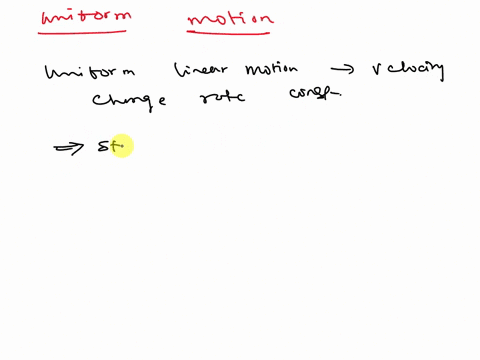 uniform motion
uniform linear motion → velocity
change rate const.
⇒ st